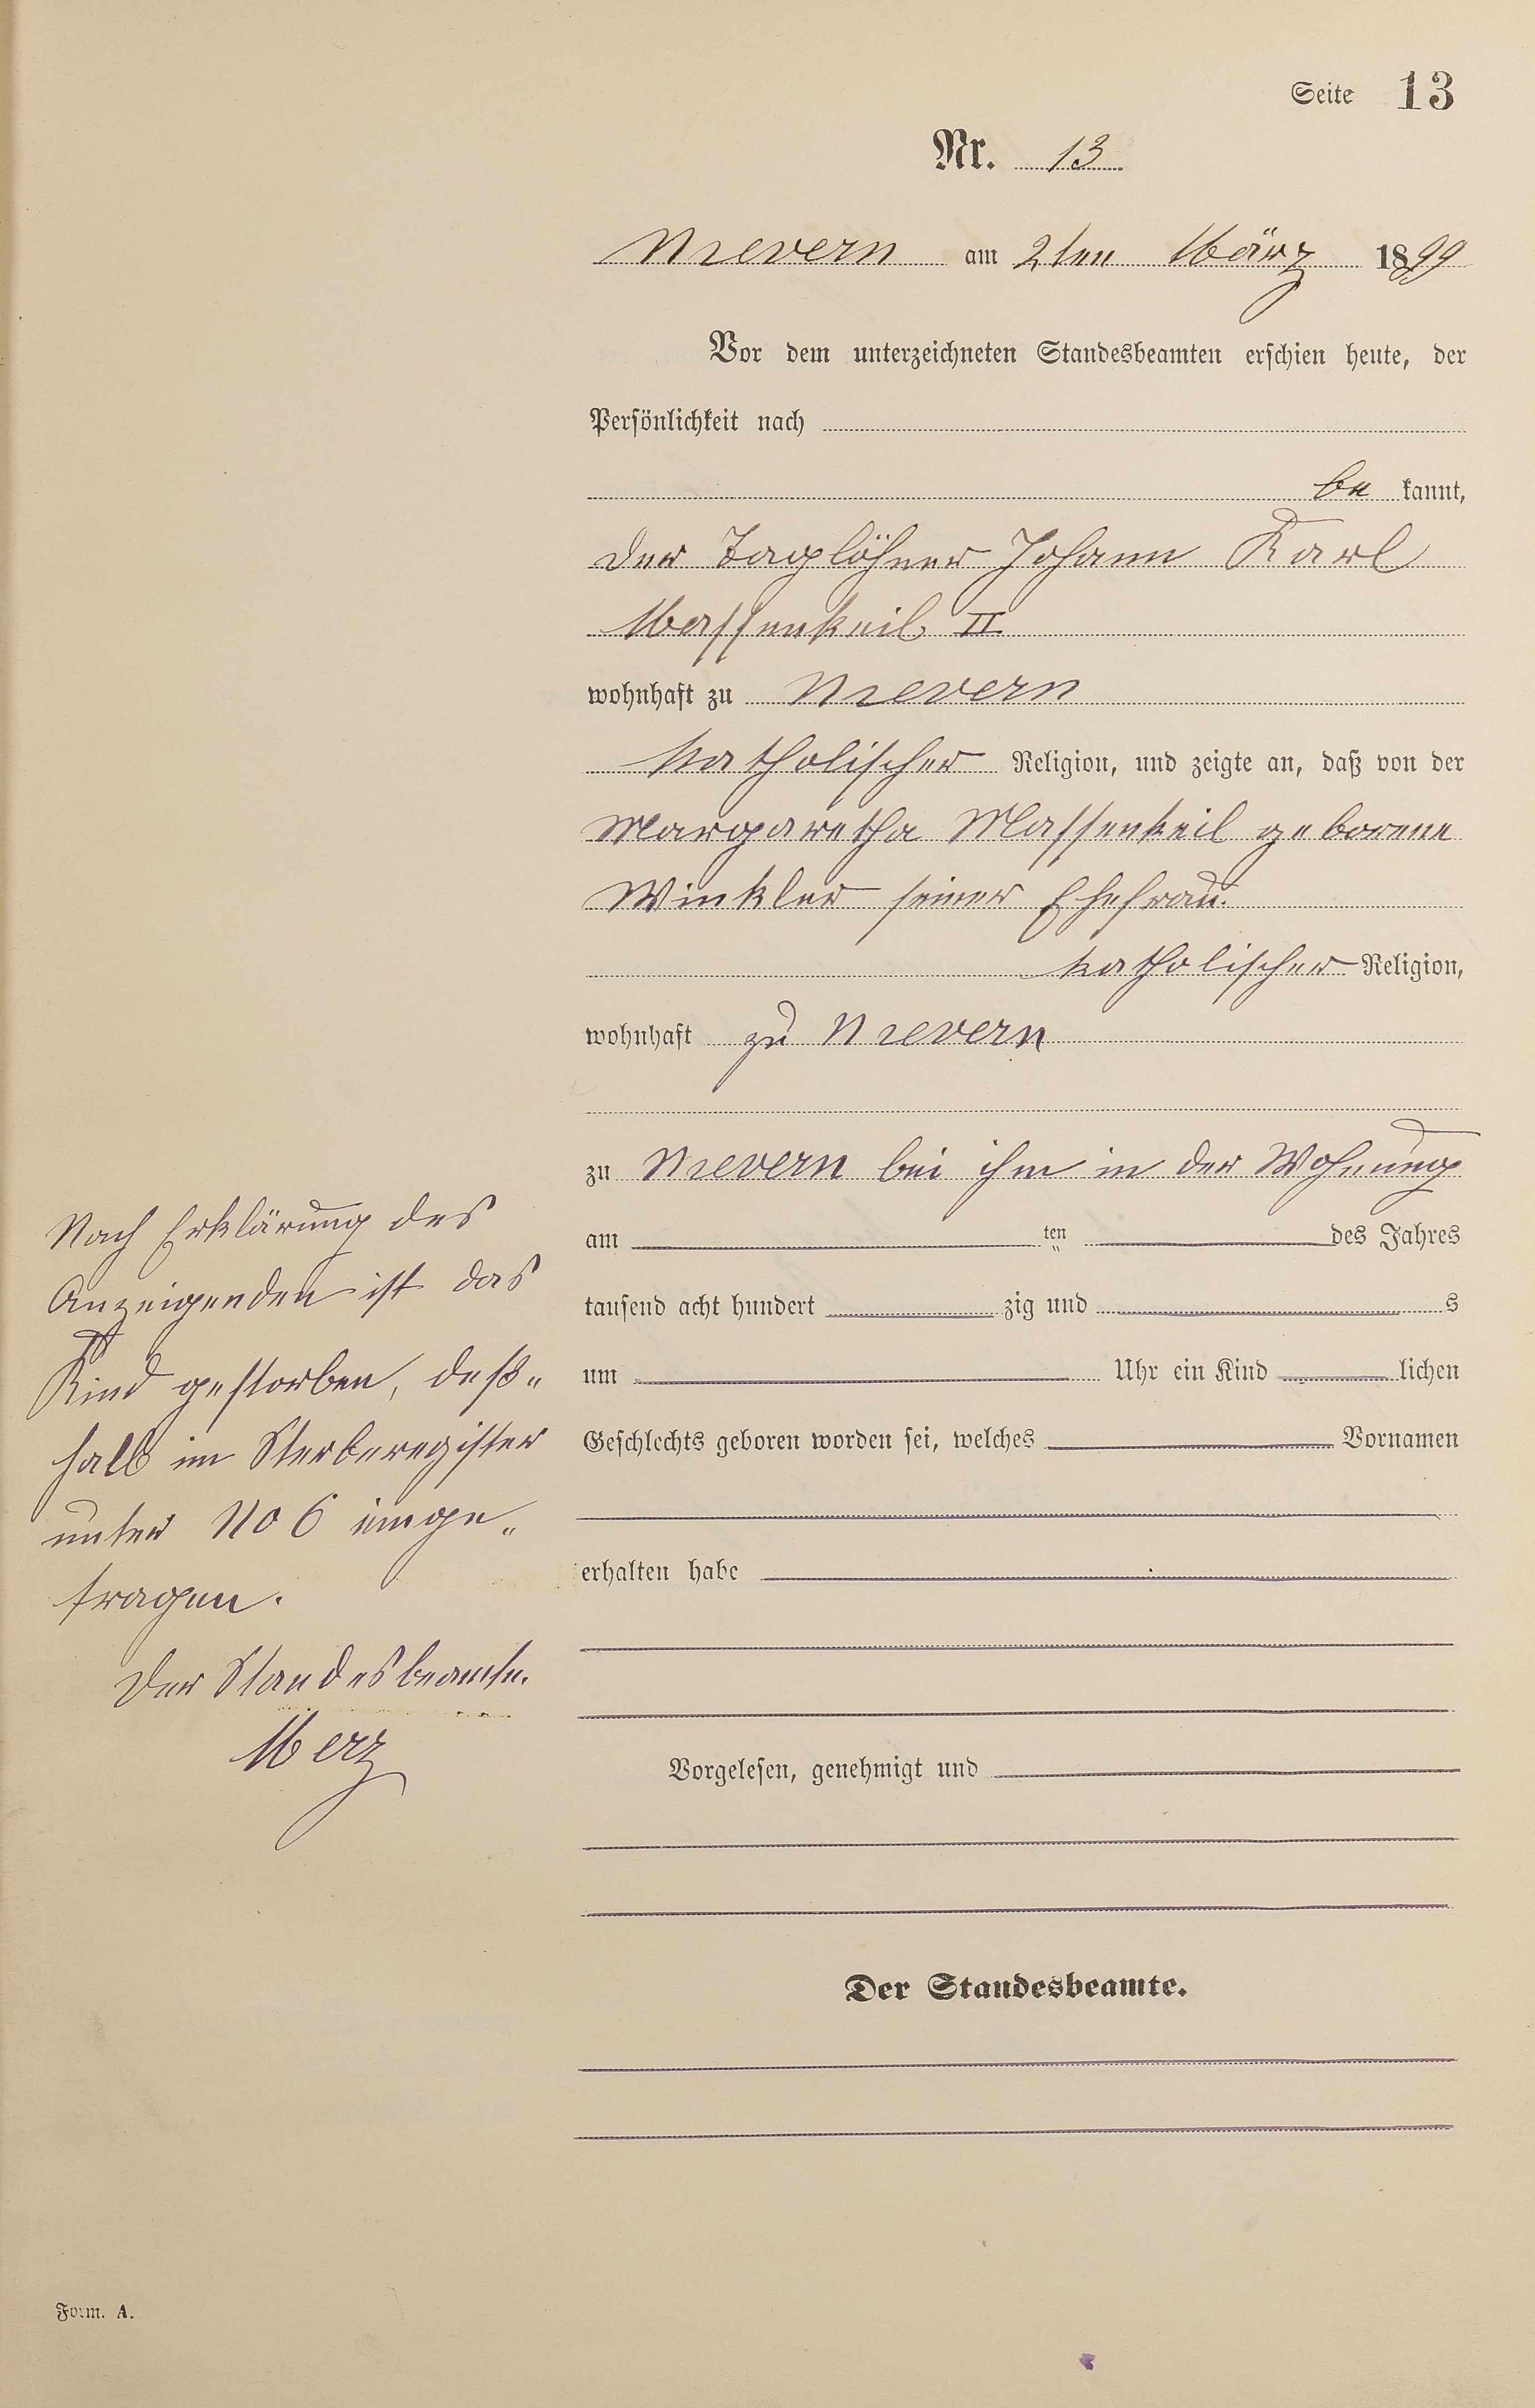 Seite 13
Nr. 13
Nievern am 2ten März 1899
Vor dem unterzeichneten Standesbeamten erschien heute, der
Persönlichkeit nach
be kannt,
der Taglöhner Johann Karl
Massenkeil II
wohnhaft zu Nievern
katholischer Religion, und zeigte an, daß von der
Margaretha Massenkeil geborene
Winkler seiner Ehefrau.
katholischer Religion,
wohnhaft zu Nievern
zu Nievern bei ihm in der Wohnung
am ten des Jahres
tausend acht hundert zig und s
um Uhr ein Kind lichen
Geschlechts geboren worden sei, welches Vornamen
erhalten habe
Vorgelesen, genehmigt und
Der Standesbeamte.
Nach Erklärung des
Anzeigenden ist das
Kind gestorben, deß„
halb im Sterberegister
unter No 6 einge„
tragen.
Der Standesbeamte.
Merz
Form. A.